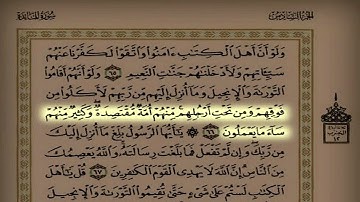 الجزء السادس سورة المائدة
وَلَوْ أَنَّ أَهْلَ الْكِتَٰبِ ءَامَنُوا وَاتَّقَوْا لَكَفَّرْنَا عَنْهُمْ
سَيِّـَٔاتِهِمْ وَلَأَدْخَلْنَٰهُمْ جَنَّٰتِ النَّعِيمِ ٦٥ وَلَوْ أَنَّهُمْ أَقَامُوا
التَّوْرَىٰةَ وَالْإِنجِيلَ وَمَا أُنزِلَ إِلَيْهِم مِّن رَّبِّهِمْ لَأَكَلُوا مِن
فَوْقِهِمْ وَمِن تَحْتِ أَرْجُلِهِم مِّنْهُمْ أُمَّةٌ مُّقْتَصِدَةٌ وَكَثِيرٌ مِّنْهُمْ
سَاءَ مَا يَعْمَلُونَ ٦٦ يَٰٓأَيُّهَا الرَّسُولُ بَلِّغْ مَا أُنزِلَ إِلَيْكَ
مِن رَّبِّكَ وَإِن لَّمْ تَفْعَلْ فَمَا بَلَّغْتَ رِسَالَتَهُ وَاللَّهُ يَعْصِمُكَ
مِنَ النَّاسِ إِنَّ اللَّهَ لَا يَهْدِي الْقَوْمَ الْكَٰفِرِينَ ٦٧ قُلْ يَٰٓأَهْلَ
الْكِتَٰبِ لَسْتُمْ عَلَىٰ شَيْءٍ حَتَّىٰ تُقِيمُوا التَّوْرَىٰةَ وَالْإِنجِيلَ